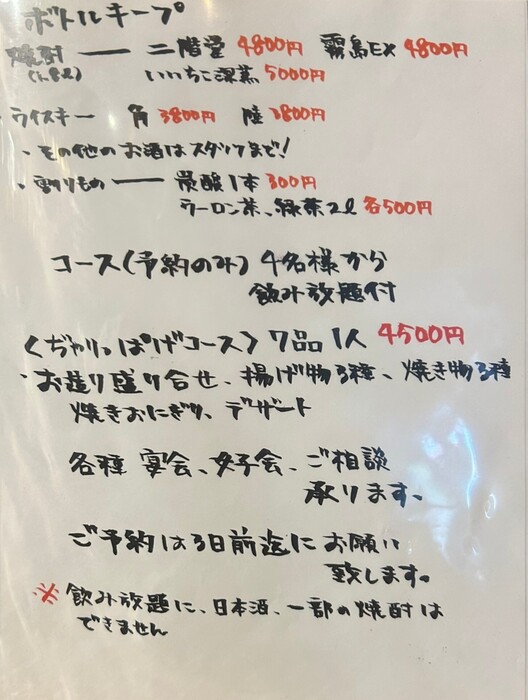 ボトルキープ
焼酎 ー 二階堂 4800円 霧島EX 4800円
(1.8ℓ) いいちこ深蒸 5000円
・ウイスキー 角 3800円 陸 3800円
・その他のお酒はスタッフまで!
・割りもの ー 炭酸1本 300円
ウーロン茶、緑茶2ℓ 各500円
コース(予約のみ) 4名様から
飲み放題付
〈ぢゃりっぱげコース〉 7品1人 4500円
・お造り盛り合せ、揚げ物3種、焼き物3種
焼きおにぎり、デザート
各種 宴会、女子会、ご相談
承ります。
ご予約は3日前迄にお願い
致します。
※ 飲み放題に、日本酒、一部の焼酎は
できません